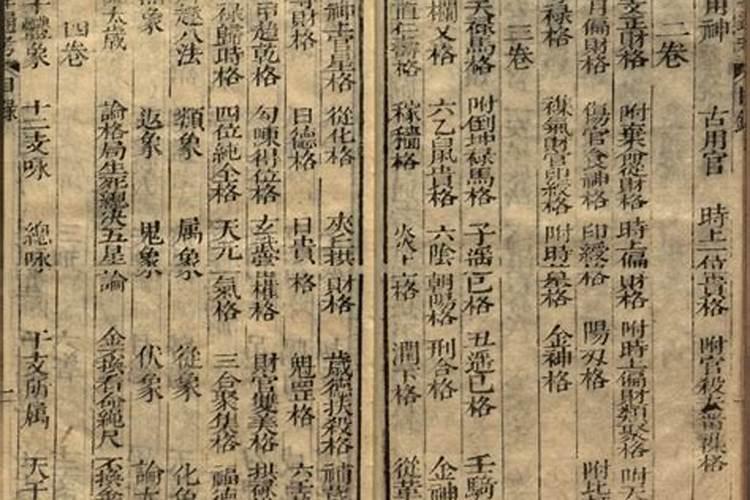 用神 古用官 時上一位貴格 附官殺去留雜格
二卷
支正財格 附棄命從財格 時上偏財格 附時上偏財類聚格
月偏財格 傷官食神格 印綬格 陽刃格
祿格 雜氣財官印綬格 附時墓格 金神格
三卷
天祿馬格 附倒冲祿馬格 子遙巳格 丑遙巳格 壬騎
欄叉格 六乙鼠貴格 六陰朝陽格 刑合格 金神
稼穡格 炎上格 潤下格 從革
神去官星格 從化格 夾丘拱財格 歲德扶殺格
財格 日德格 日貴格 魁罡格 六壬
甲趨乾格 勾陳得位格 玄武當權格 財官雙美格 拱祿
祿歸時格 四位純全格 天元一氣格 三合聚集格 福德
八法 類象 属象 從象 化象
象 返象 鬼象 伏象 論
太歲 論格局生死總决 五星論 金不換看命繩尺 不換
四卷
體象 十二支咏 總咏 干支所属 天干
目錄